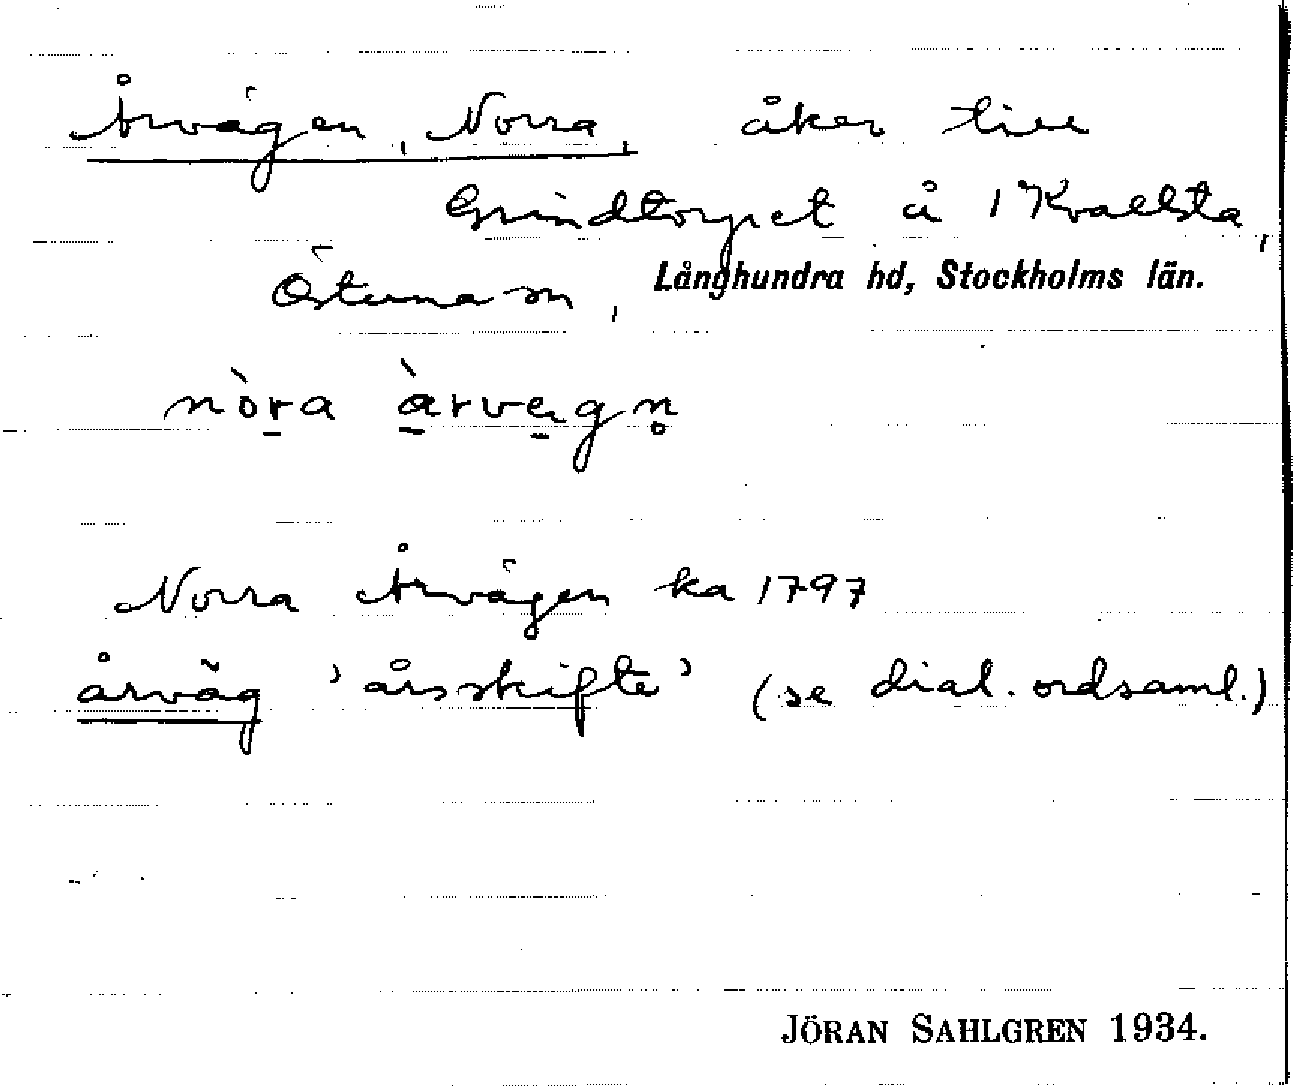 Årvägen, Norra, åker till
Grindtorpet å 1 Kvallsta,
Östuna sn, Långhundra hd, Stockholms län.
nòra àrvegn̥
Norra Årvägen ka 1797
årväg 'årsskifte' (se dial. ordsaml.)
JÖRAN SAHLGREN 1934.